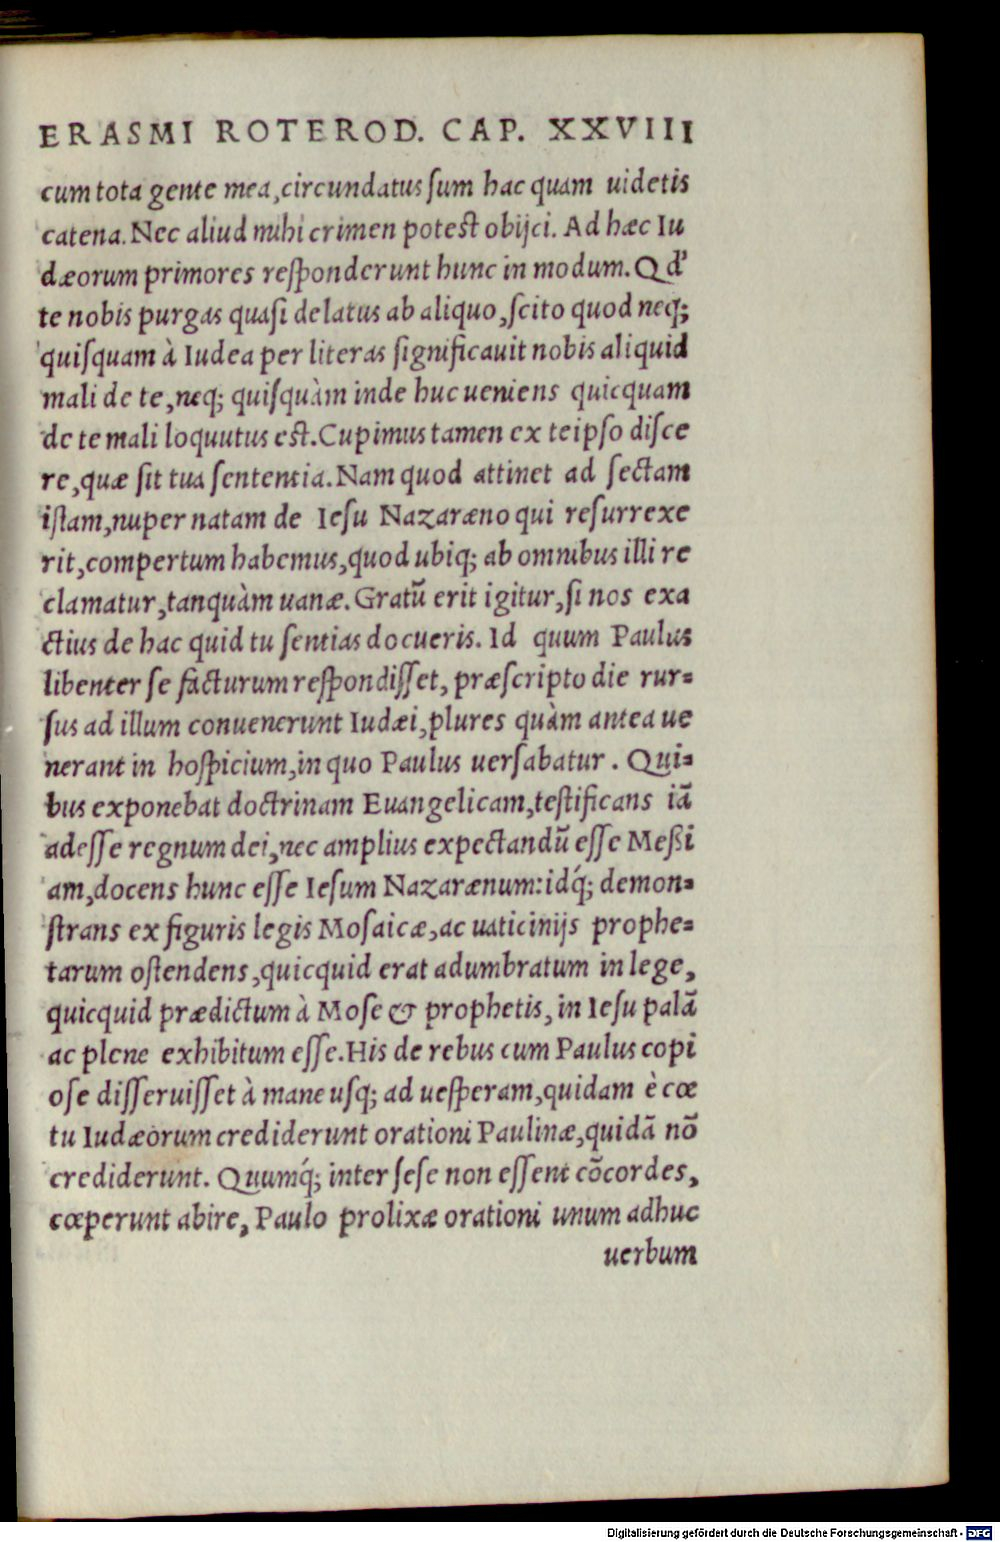 ERASMI ROTEROD. CAP. XXVIII
cum tota gente mea,circundatus ſum hac quam uidetis
catena.Nec aliud mihi crimen poteſt obijci. Ad hæc Iu
dæorum primores reſponderunt hunc in modum. Q d'
te nobis purgas quaſi delatus ab aliquo,ſcito quod neq;
quiſquam à Iudea per literas ſignificauit nobis aliquid
mali de te,neq; quiſquàm inde huc ueniens quicquam
de te mali loquutus eſt.Cupimus tamen ex teipſo diſce
re,quæ ſit tua ſententia.Nam quod attinet ad ſectam
iſtam,nuper natam de Ieſu Nazaræno qui reſurrexe
rit,compertum habemus,quod ubiq; ab omnibus illi re
clamatur,tanquàm uanæ.Gratũ erit igitur,ſi nos exa
ctius de hac quid tu ſentias docueris. Id quum Paulus
libenter ſe facturum reſpondiſſet, præſcripto die rur=
ſus ad illum conuenerunt Iudæi,plures quàm antea ue
nerant in hoſpicium,in quo Paulus uerſabatur . Qui=
bus exponebat doctrinam Euangelicam,teſtificans iã
adeſſe regnum dei,nec amplius expectandũ eſſe Meßi
am,docens hunc eſſe Ieſum Nazarænum:idq́; demon=
ſtrans ex figuris legis Moſaicæ,ac uaticinijs prophe=
tarum oſtendens,quicquid erat adumbratum in lege,
quicquid prædictum à Moſe & prophetis, in Ieſu palã
ac plene exhibitum eſſe.His de rebus cum Paulus copi
oſe diſſeruiſſet à mane uſq; ad ueſperam,quidam è cœ
tu Iudæorum crediderunt orationi Paulinæ,quidã nõ
crediderunt. Quumq́; inter ſeſe non eſſent cõcordes,
cœperunt abire, Paulo prolixæ orationi unum adhuc
uerbum
Digitalisierung gefördert durch die Deutsche Forschungsgemeinschaft - DFG